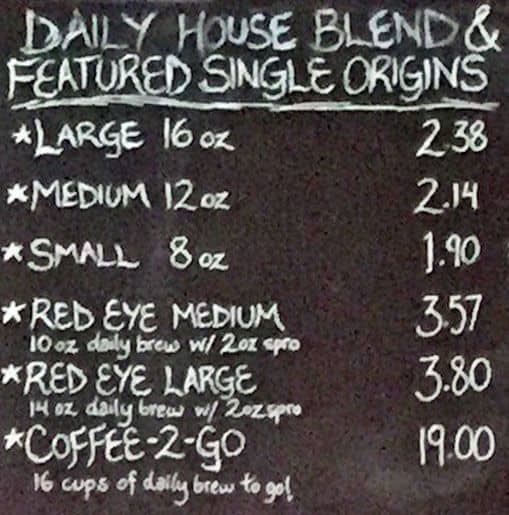 DAILY HOUSE BLEND &
FEATURED SINGLE ORIGINS
*LARGE 16 oz 2.38
*MEDIUM 12 oz 2.14
*SMALL 8 oz 1.90
*RED EYE MEDIUM 3.57
10 oz daily brew w/ 2oz spro
*RED EYE LARGE 3.80
14 oz daily brew w/ 2oz spro
*COFFEE-2-GO 19.00
16 cups of daily brew to go!